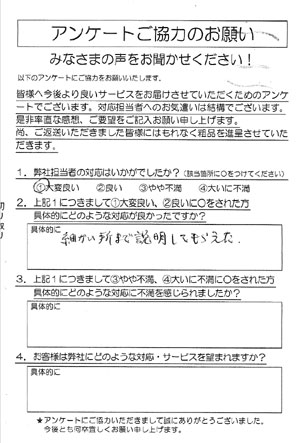 アンケートご協力のお願い
みなさまの声をお聞かせください!
以下のアンケートにご協力をお願いいたします。
皆様へ今後より良いサービスをお届けさせていただくためのアンケ
ートでございます。対応担当者へのお気遣いは結構でございます。
是非率直な感想、ご要望をご記入お願い申し上げます。
尚、ご返送いただきました皆様にはもれなく粗品を進呈させていた
だきます。
1.弊社担当者の対応はいかがでしたか?(該当箇所に○をつけてください)
①大変良い ②良い ③やや不満 ④大いに不満
2.上記1につきまして①大変良い、②良いに○をされた方
具体的にどのような対応が良かったですか?
具体的に
細かい所まで説明してもらえた.
3.上記1につきまして③やや不満、④大いに不満に○をされた方
具体的にどのような対応に不満を感じられましたか?
具体的に
4.お客様は弊社にどのような対応・サービスを望まれますか?
具体的に
★アンケートにご協力いただきまして誠にありがとうございました。
今後とも何卒宜しくお願い申し上げます。
切り取り